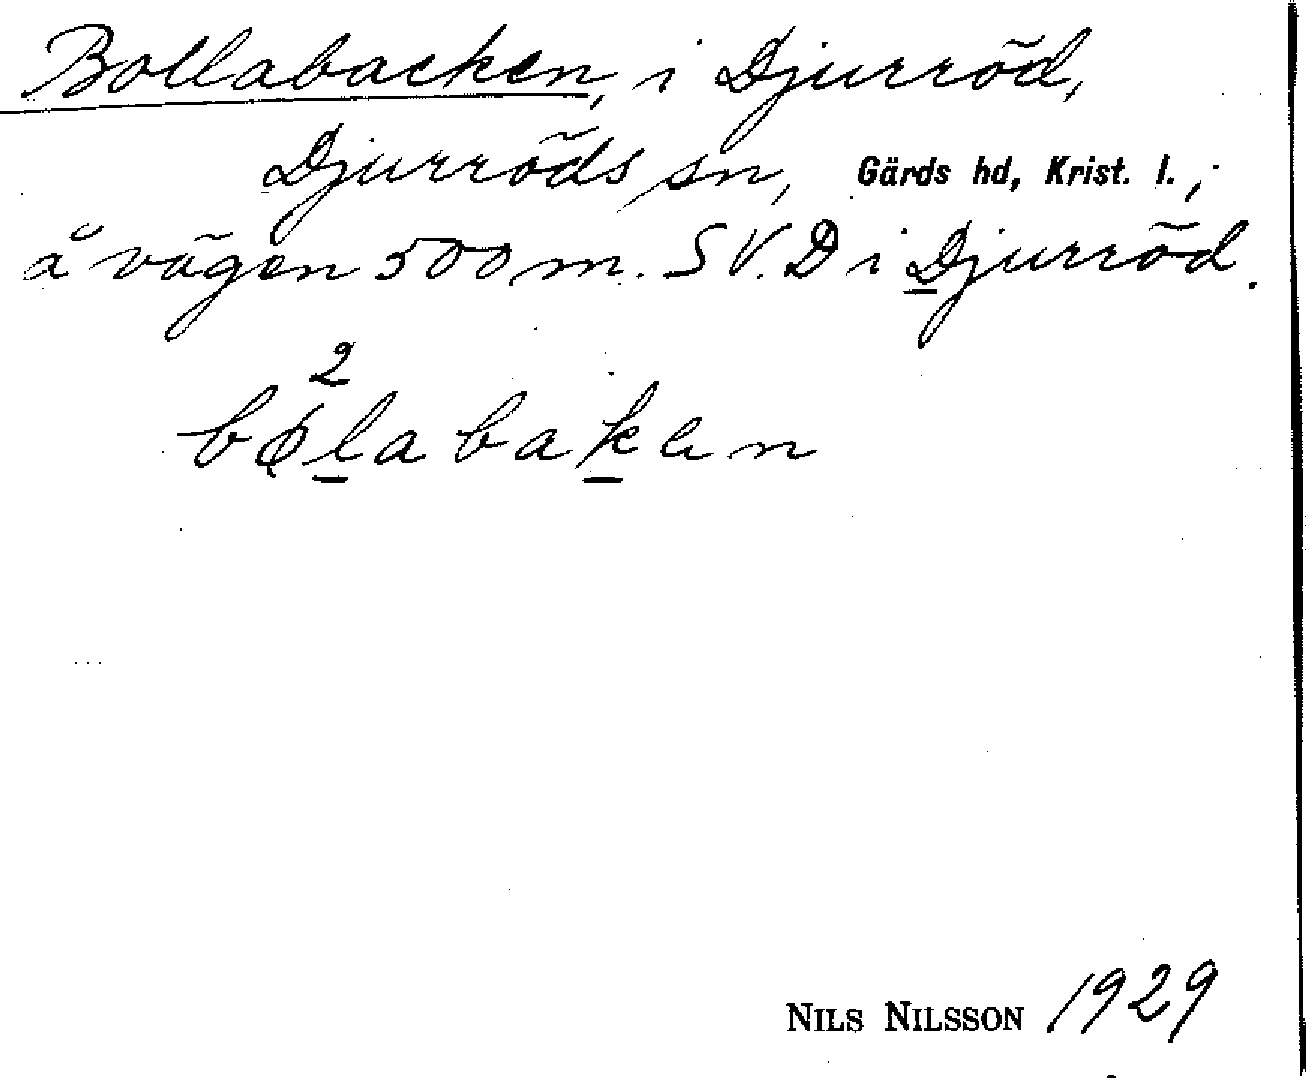 Bollabacken, i Djurröd,
Djurröds sn, Gärds hd, Krist. l.,
å vägen 500 m. SV. D i Djurröd.
2
bφlabaken
NILS NILSSON 1929